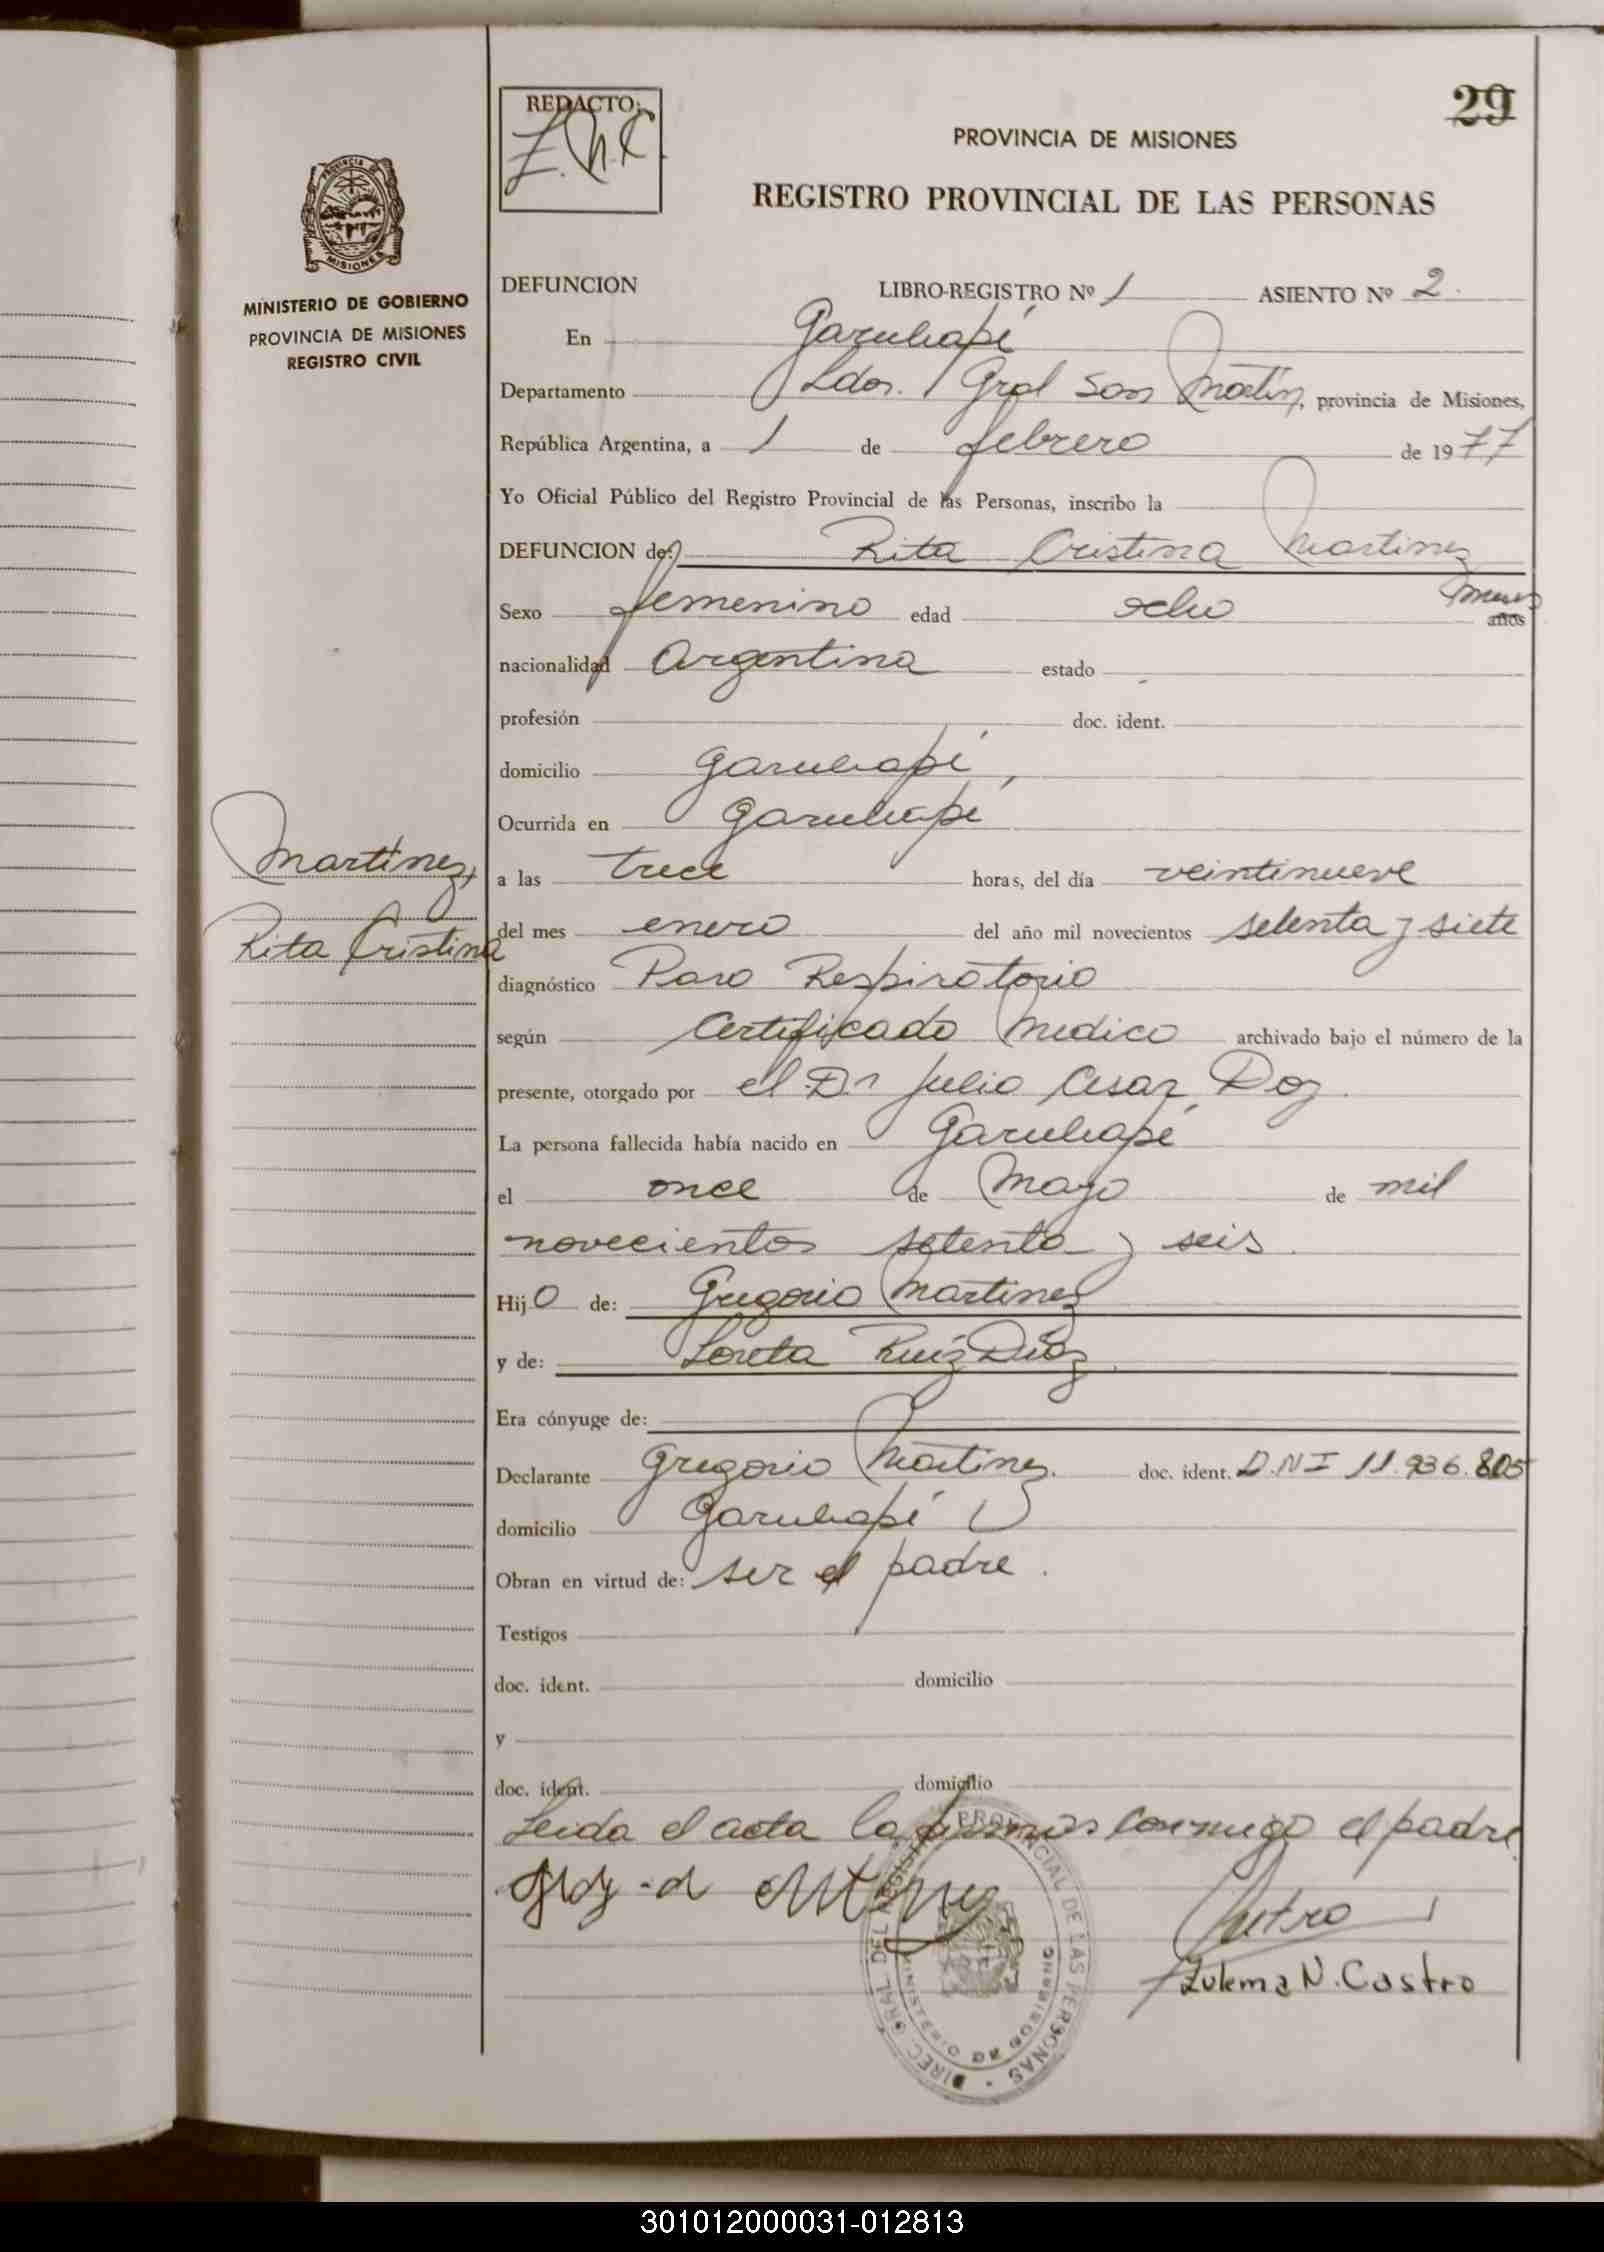 29
REDACTO:
Z.N.C.
PROVINCIA DE MISIONES
REGISTRO PROVINCIAL DE LAS PERSONAS
PROVINCIA
MISIONES
MINISTERIO DE GOBIERNO
PROVINCIA DE MISIONES
REGISTRO CIVIL
DEFUNCION LIBRO-REGISTRO Nº 1 ASIENTO Nº 2.
En Garuhapé
Departamento Ldor. Gral San Martín, provincia de Misiones,
República Argentina, a 1 de febrero de 1977
Yo Oficial Público del Registro Provincial de las Personas, inscribo la
DEFUNCION de: Rita Cristina Martinez
Sexo femenino edad ocho meses años
nacionalidad Argentina estado
profesión doc. ident.
domicilio Garuhapé,
Ocurrida en Garuhapé
Martínez,
Rita Cristina
a las trece horas, del día veintinueve
del mes enero del año mil novecientos setenta y siete
diagnóstico Paro Respiratorio
según Certificado Medico archivado bajo el número de la
presente, otorgado por el Dr Julio Cesar Doz.
La persona fallecida había nacido en Garuhapé
el once de Mayo de mil
novecientos setenta y seis.
Hijo de: Gregorio Martinez
y de: Loreta Ruiz Díaz
Era cónyuge de:
Declarante Gregorio Martinez. doc. ident. D.N I 11.936.805
domicilio Garuhapé
Obran en virtud de: ser el padre.
Testigos
doc. ident. domicilio
y
doc. ident. domicilio
Leida el acta la firma conmigo el padre.
Castro
Zulema N. Castro
DIREC. GRAL. DEL REGISTRO PROVINCIAL DE LAS PERSONAS
MINISTERIO DE GOBIERNO
301012000031-012813